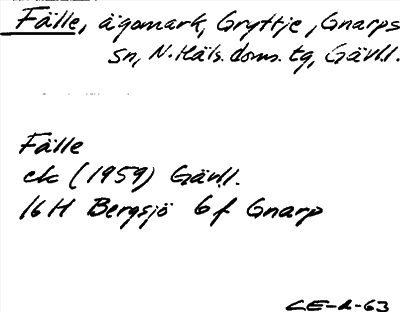 Fälle, ägomark, Gryttje, Gnarps
sn, N. Häls. doms. tg, Gävl.l.
Fälle
ek (1959) Gävl.l.
16 H Bergsjö 6 f Gnarp
CE-R-63